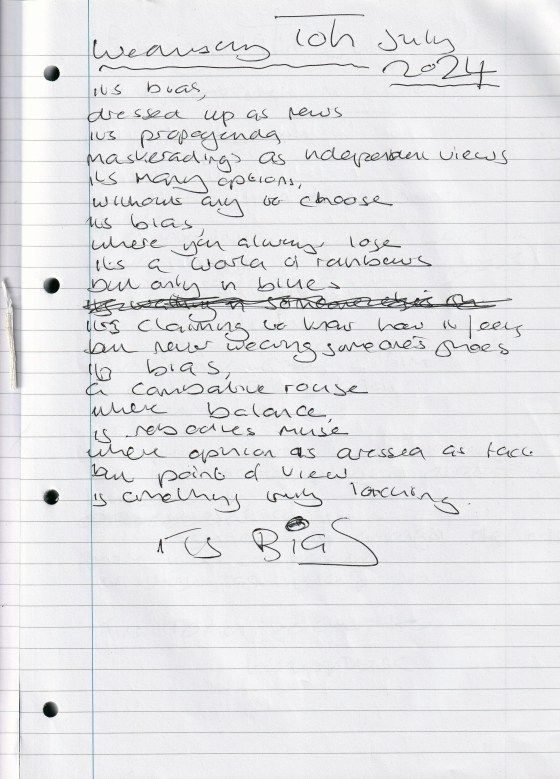 Wednesday 10th July
2024
its bias,
dressed up as news
its propaganda
maskeradings as independent views
its many options,
without any to choose
its bias,
where you always lose
its a world of rainbows
but only in blues
its claiming to know how it feels
but never wearing someone's shoes
its bias,
a combative rouse
where balance,
is nobodies muse
where opinion is dressed as fact
but point of view
is something truly lacking.
ITS BIAS